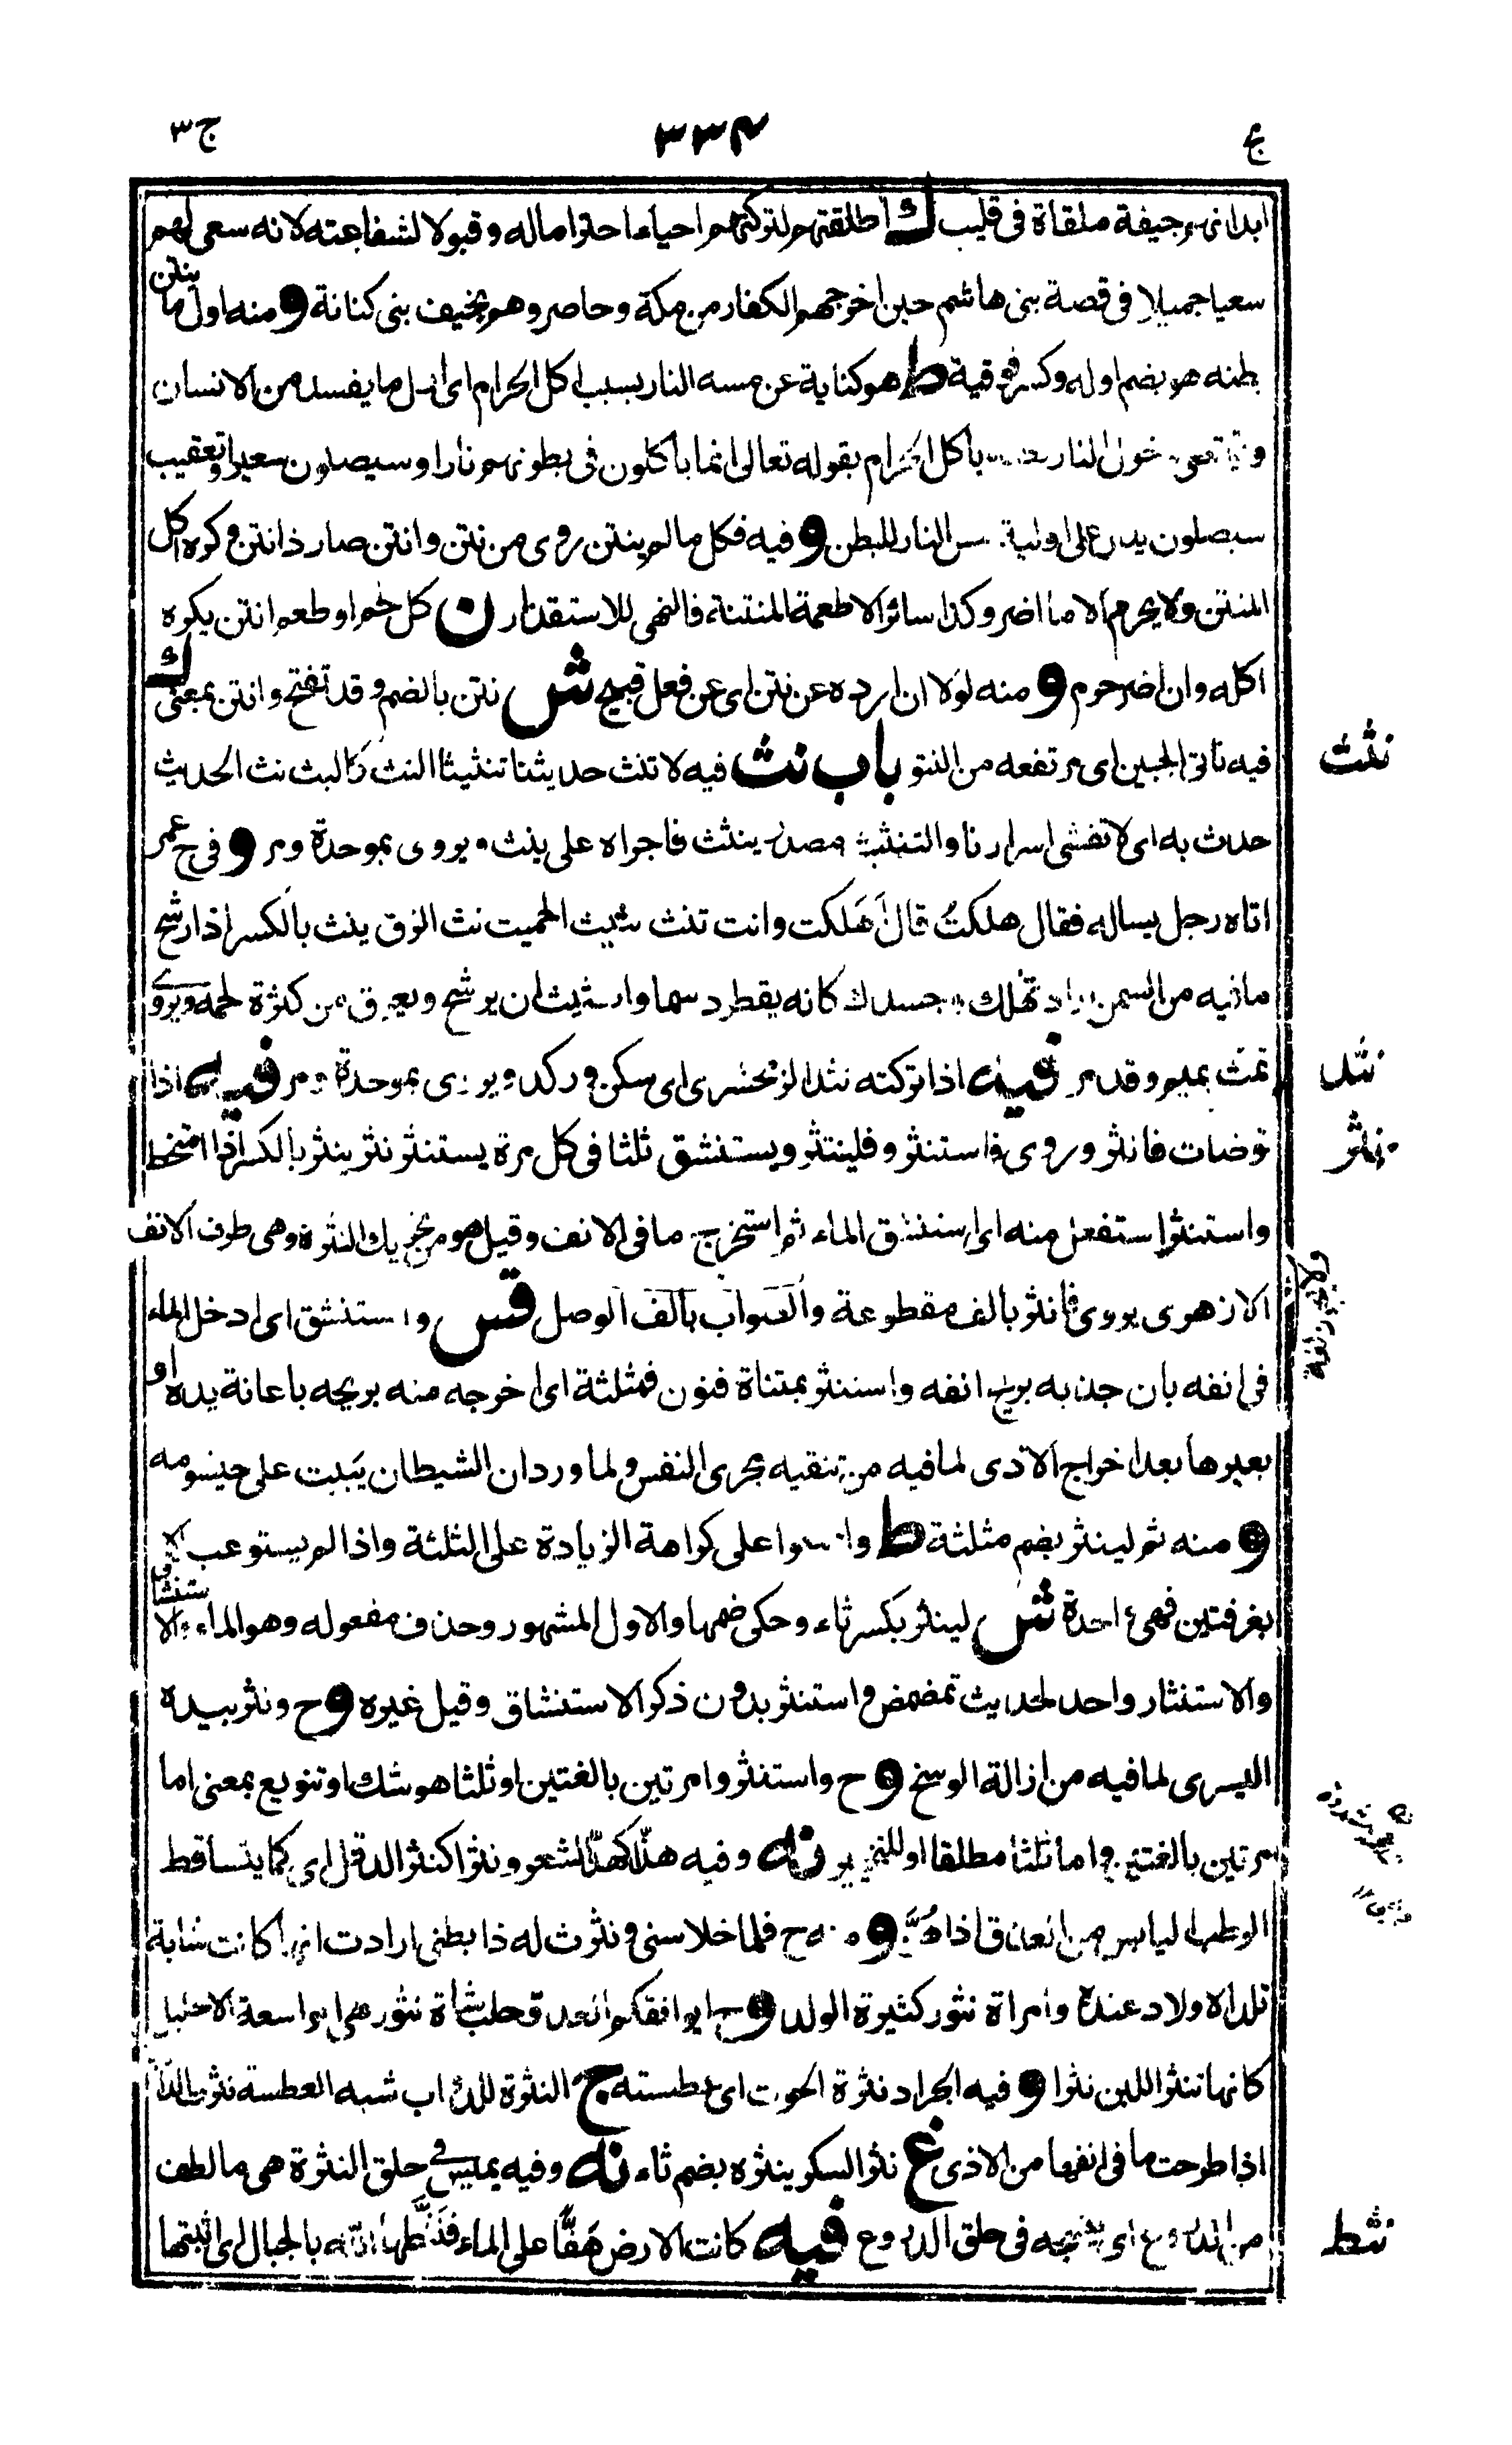 ج ٣
٣٣٤
ابدانهم جيفة ملقاة فى قليب ك اطلقتهم لتركتهم احياء احتراما له وقبولا لشفاعته لانه سعى لهم
سعيا جميلا فى قصة بنى هاشم حين اخرجهم الكفار من مكة وحاصروهم بخيف بنى كنانة و منه اول ما ينتن
بطنه هو بضم اوله وكسر فوقية ط هو كناية عن مسه النار بسبب اكل الحرام اى اول ما يفسد من الانسان
النار باكل الحرام بقوله تعالى انما ياكلون فى بطونهم نارا وسيصلون سعيرا وتعقيب
سيصلون يدل على اولية مس النار للبطن و فيه فكل ما لم ينتن روى من نتن وانتن صار ذا نتن وكره اكل
المنتن ولا يحرم الا ما اضر وكذا سائر الاطعمة المنتنة فالنهى للاستقذار ن كل لحم او طعم انتن يكره
اكله وان اضر حرم و منه لولا ان ارده عن نتن اى عن فعل قبيح ش نتن بالضم وقد تفتح وانتن بمعنى ك
فيه ناتئ الجبين اى مرتفعه من النتو باب نث فيه لا تنث حديثنا تنثيثا النث كالبث نث الحديث
نثث
حدث به اى لا تفشى اسرارنا والتنثيث مصدر ينثث فاجراه على ينث ويروى بموحدة ومر و فى ح عمر
اتاه رجل يساله فقال هلكتُ قال أهَلكت وانت تنث نثيث الحميت نث الزق ينث بالكسر اذا رشح
ما فيه من السمن اراد تهلك وجسدك كانه يقطر دسما والنثيث ان يرشح ويعرق من كثرة لحمه ويروى
تمث بميم وقد مر فيه اذا تركته نثد الزمخشرى اى سكن وركد ويروى بموحدة ومر فيه اذا
نثد
توضات فانثر وروى فاستنثر وفلينتثر ويستنشق ثلثا فى كل مرة يستنثر نثر ينثر بالكسر اذا امتخط
نثر
واستنثر استفعل منه اى استنشق الماء ثم استخرج ما فى الانف وقيل هو من تحريك النثرة وهى طرف الانف
الازهرى يروى فانثر بالف مقطوعة والصواب بالف الوصل قس واستنشق اى ادخل الماء
فى انفه بان جذبه بريح انفه واستنثر بمثناة فنون فمثلثة اى اخرجه منه بريحه باعانة يده او
بغيرها بعد اخراج الاذى لما فيه من تنقيه مجرى النفس ولما ورد ان الشيطان يبيت على خيشومه
و منه ثم لينثر بضم مثلثة ط على كراهة الزيادة على الثلثة واذا لم يستوعب الا
بغرفتين فهى واحدة ش لينثر بكسر ثاء وحكى ضمها والاول المشهور وحذف مفعوله وهو الماء والاستنشاق
والاستنثار واحد لحديث تمضمض واستنثر بدون ذكر الاستنشاق وقيل غيره و ح ونثر بيده
اليسرى لما فيه من ازالة الوسخ و ح واستنثروا مرتين بالغتين او ثلثا هو شك او تنويع بمعنى اما
مرتين بالغتين واما ثلثا مطلقا او للتخيير نه وفيه هذّا كهذّ الشعر ونثرا كنثر الدقل اى كما يتساقط
الرطب اليابس من العذق اذا هُزَّ و منه ح فلما خلا سنى ونثرت له ذا بطنى ارادت انها كانت شابة
تلد الاولاد عنده وامراة نثور كثيرة الولد و ح ايوافقكم العدو حلب شاة نثور هى الواسعة الاحليل
كانها تنثر اللبن نثرا و فيه الجراد نثرة الحوت اى عطسته ج النثرة للدواب شبه العطسة نثرت الدابة
اذا طرحت ما فى انفها من الاذى غ نثر السكر ينثره بضم ثاء نه وفيه يميس فى حلق النثرة هى ما لطف
من الدروع اى يتبختر فى حلق الدروع فيه كانت الارض هَفًّا على الماء فنَثَطها الله بالجبال اى اثبتها
نثط